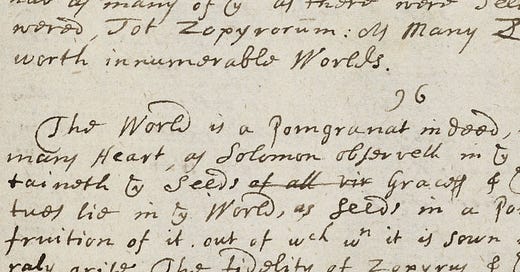 as many of ye as there were Seed
wered, Tot Zopyrorum: As Many
worth innumerable Worlds.
96
The World is a Pomgranat indeed,
many Heart, as Solomon observeth in ye
taineth ye Seeds of all vir Graces &
tues lie in ye World, as Seeds in a Po
fruition of it. out of wch wn it is sown
raly arise. The fidelity of Zopyrus &